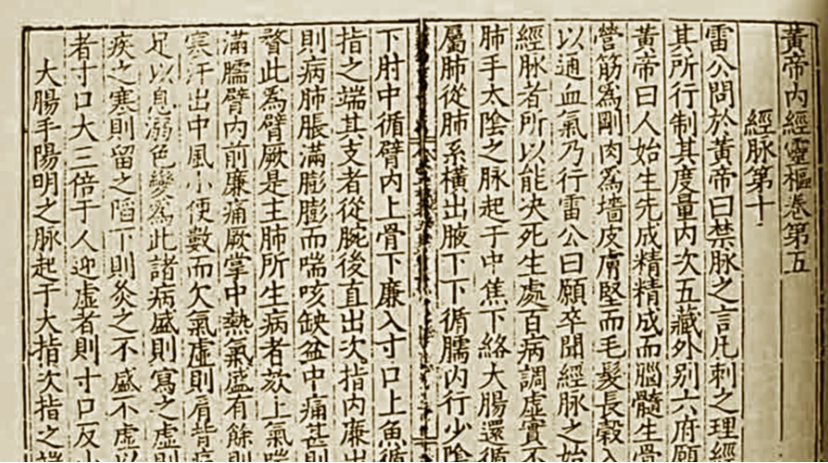 黃帝內經靈樞卷第五
經脉第十
雷公問於黃帝曰禁脉之言凡刺之理經
其所行制其度量內次五藏外别六府願
黃帝曰人始生先成精精成而腦髓生骨
營筋爲剛肉爲墻皮膚堅而毛髮長穀入
以通血氣乃行雷公曰願卒聞經脉之始
經脉者所以能決死生處百病調虛實不
肺手太陰之脉起于中焦下絡大腸還循
屬肺從肺系橫出腋下下循臑內行少陰
下肘中循臂內上骨下廉入寸口上魚循
指之端其支者從腕後直出次指內廉出
則病肺脹滿膨膨而喘咳缺盆中痛甚則
瞀此爲臂厥是主肺所生病者欬上氣喘
滿臑臂內前廉痛厥掌中熱氣盛有餘則
寒汗出中風小便數而欠氣虛則肩背痛
足以息溺色變爲此諸病盛則寫之虛則
疾之寒則留之陷下則灸之不盛不虛以
者寸口大三倍于人迎虛者則寸口反小
大腸手陽明之脉起于大指次指之端